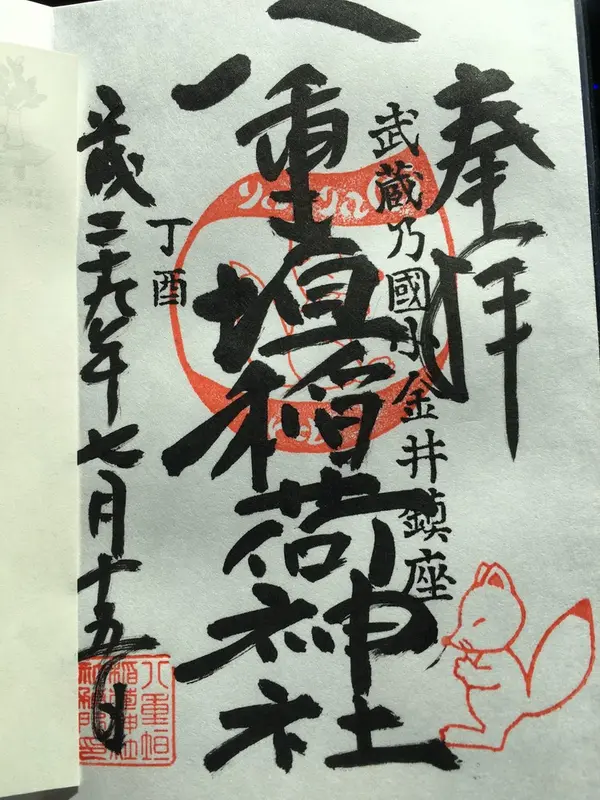 奉拝
武蔵乃國小金井鎮座
八重垣稲荷神社
丁酉
平成二十九年七月十五日
八重垣
稲荷神社